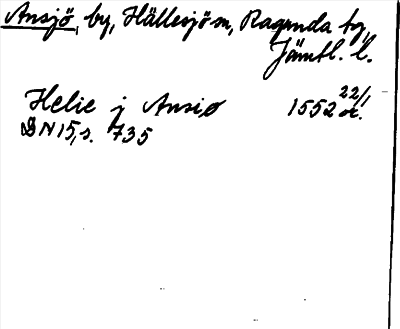 Ansjö, by, Hällesjö sn, Ragunda tg,
Jämtl. l.
Helie j Ansiø 1552 22/1 or.
DN 15, s. 735